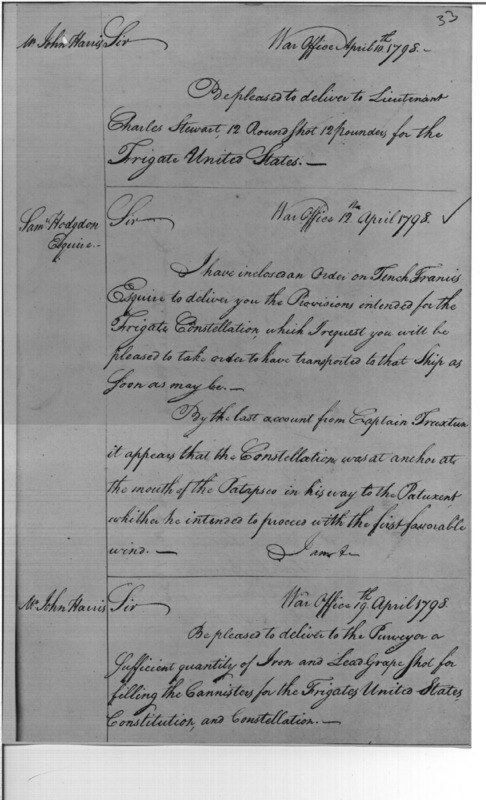 33
Mr. John Harris Sir War Office April 10th 1798.
Be pleased to deliver to Lieutenant
Charles Stewart, 12 Round Shot 12 pounders, for the
Frigate United States.
Saml Hodgdon Sir War Office 12th April 1798.
Esquire
I have inclosed an Order on Tench Francis
Esqre to deliver you the Provisions intended for the
Frigate Constellation, which I request you will be
pleased to take order to have transported to that Ship as
soon as may be.
By the last account from Captain Truxtun
it appears that the Constellation was at anchor at
the mouth of the Patapsco in his way to the Patuxent
whither he intended to proceed with the first favorable
wind. I am &c
Mr. John Harris Sir War Office 19th April 1798.
Be pleased to deliver to the Purveyor a
sufficient quantity of Iron and Lead Grape Shot for
filling the Cannisters for the Frigates United States,
Constitution, and Constellation.